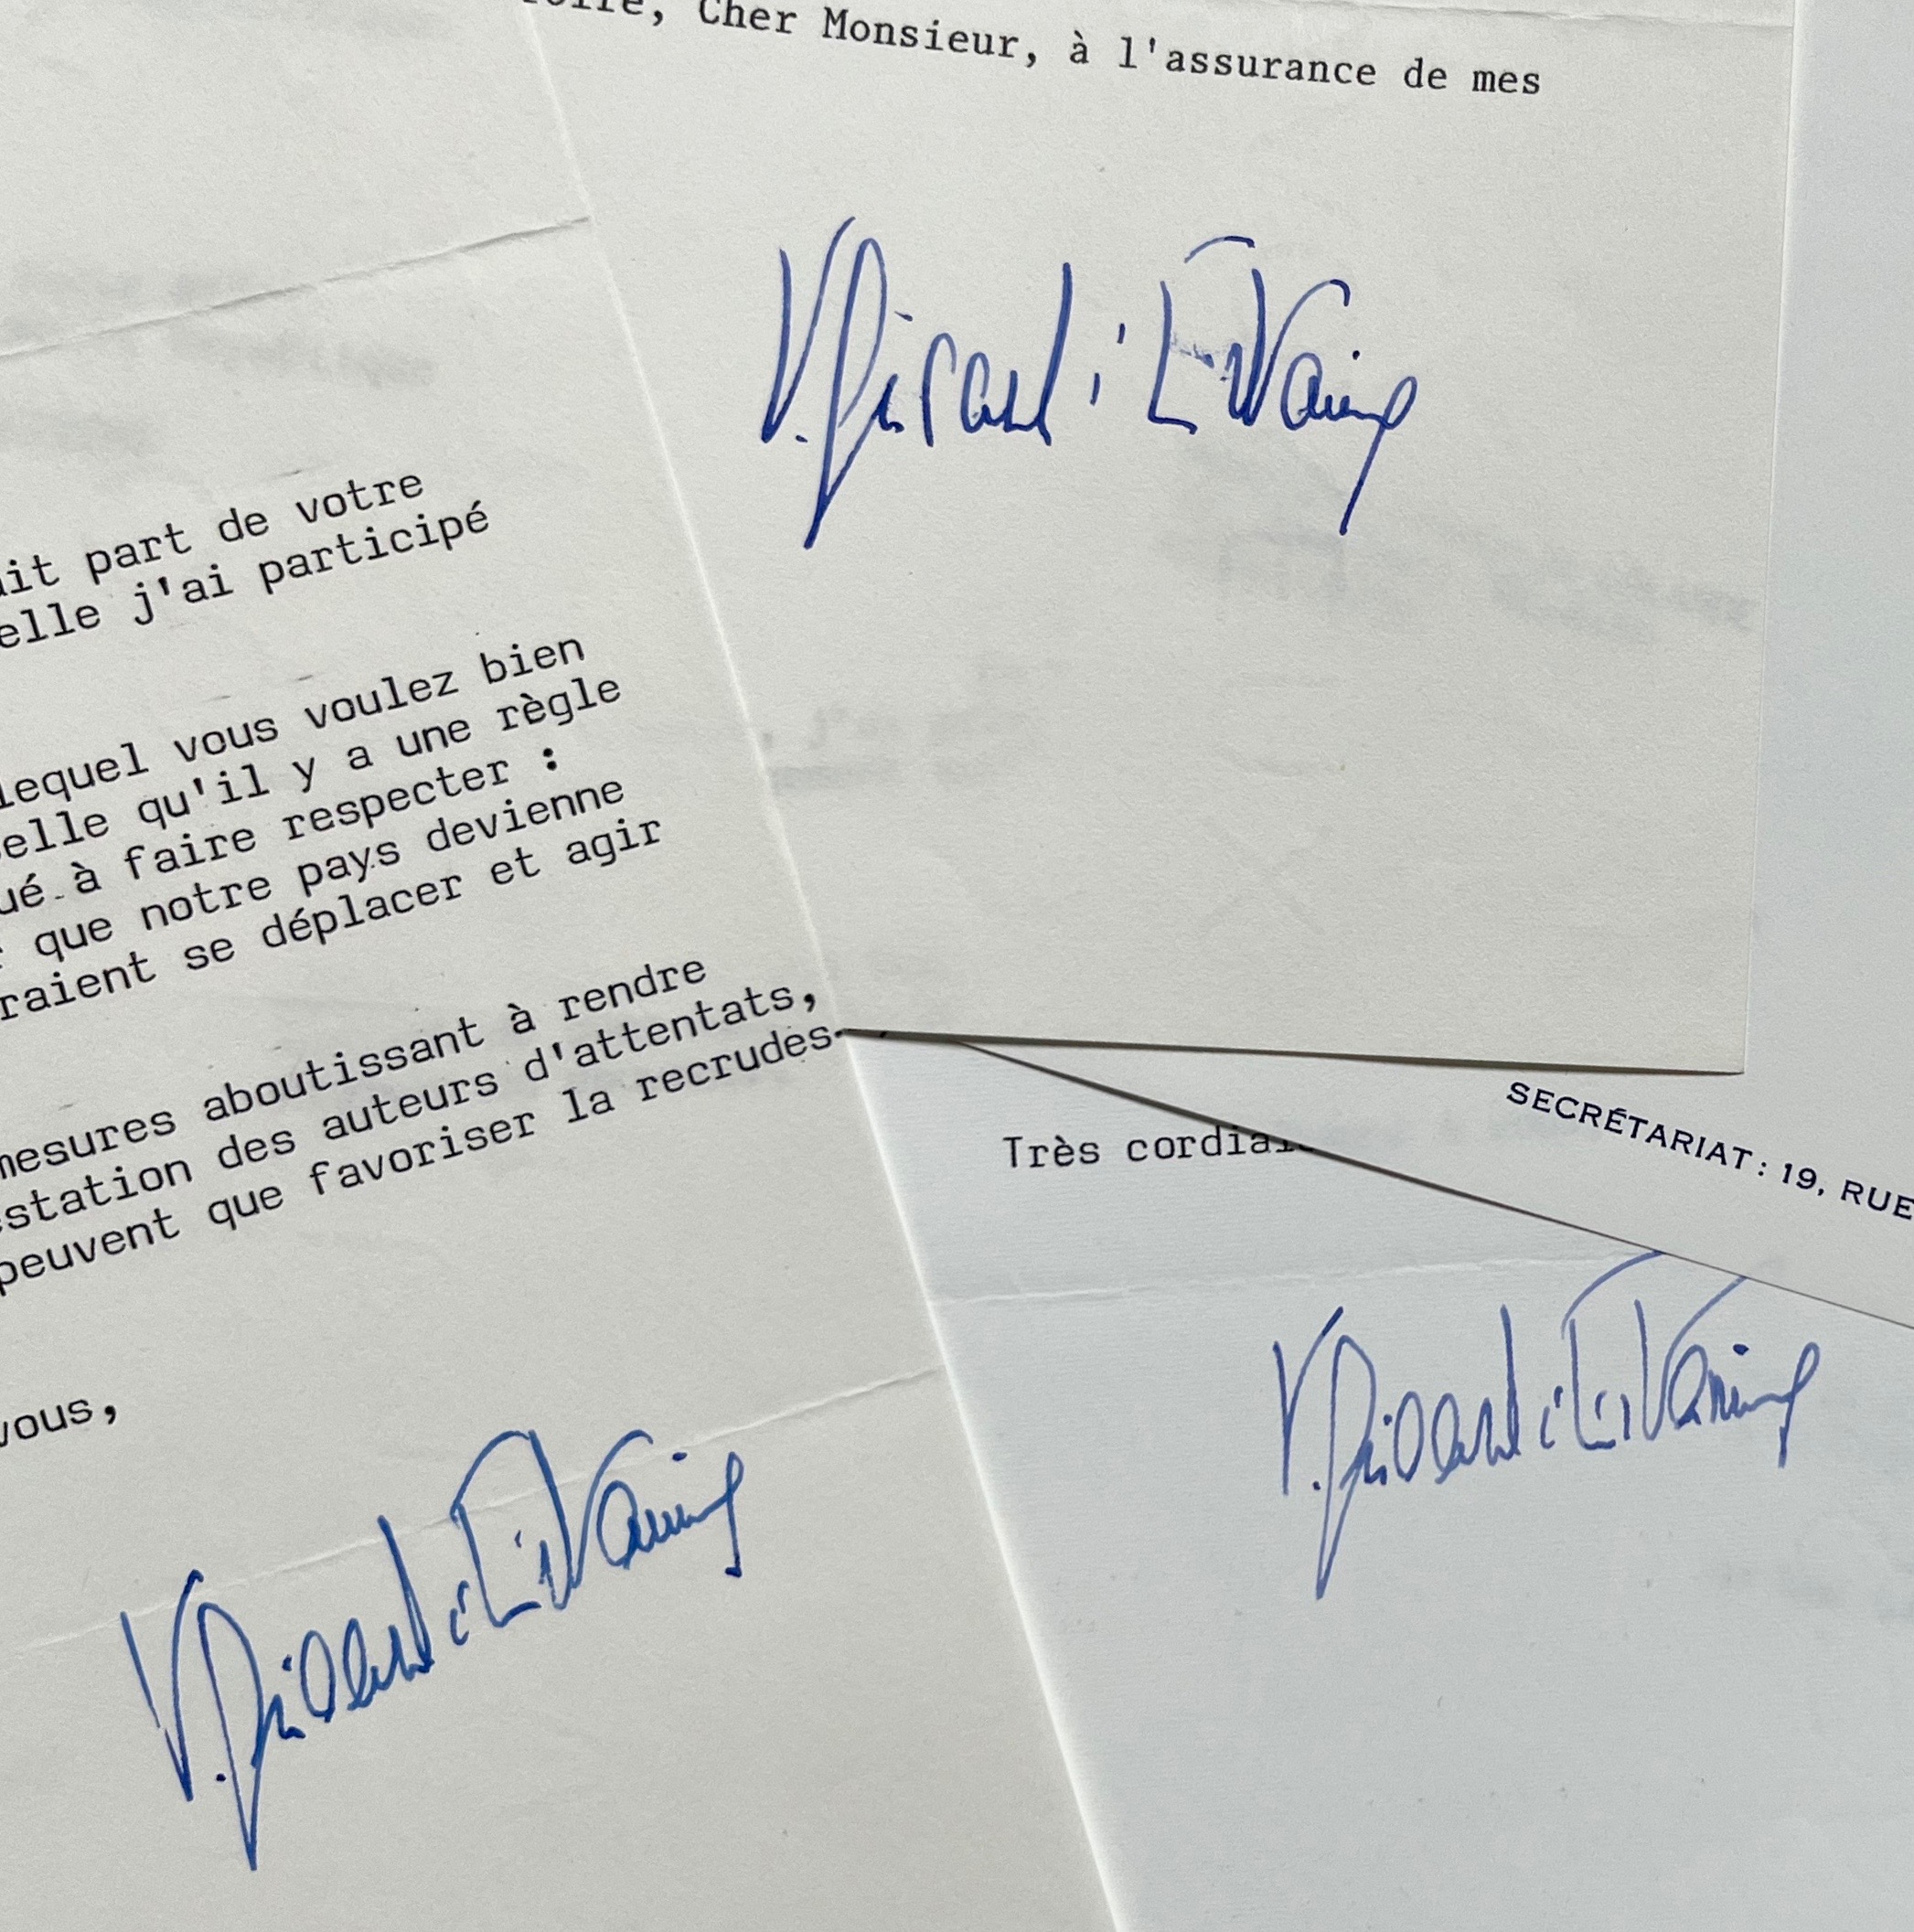 Cher Monsieur, à l'assurance de mes
V. Giscard d'Estaing
part de votre
elle j'ai participé
lequel vous voulez bien
elle qu'il y a une règle
ué à faire respecter :
que notre pays devienne
raient se déplacer et agir
mesures aboutissant à rendre
station des auteurs d'attentats,
peuvent que favoriser la recrudes-
vous,
V. Giscard d'Estaing
SECRÉTARIAT : 19, RUE
Très cordial
V. Giscard d'Estaing